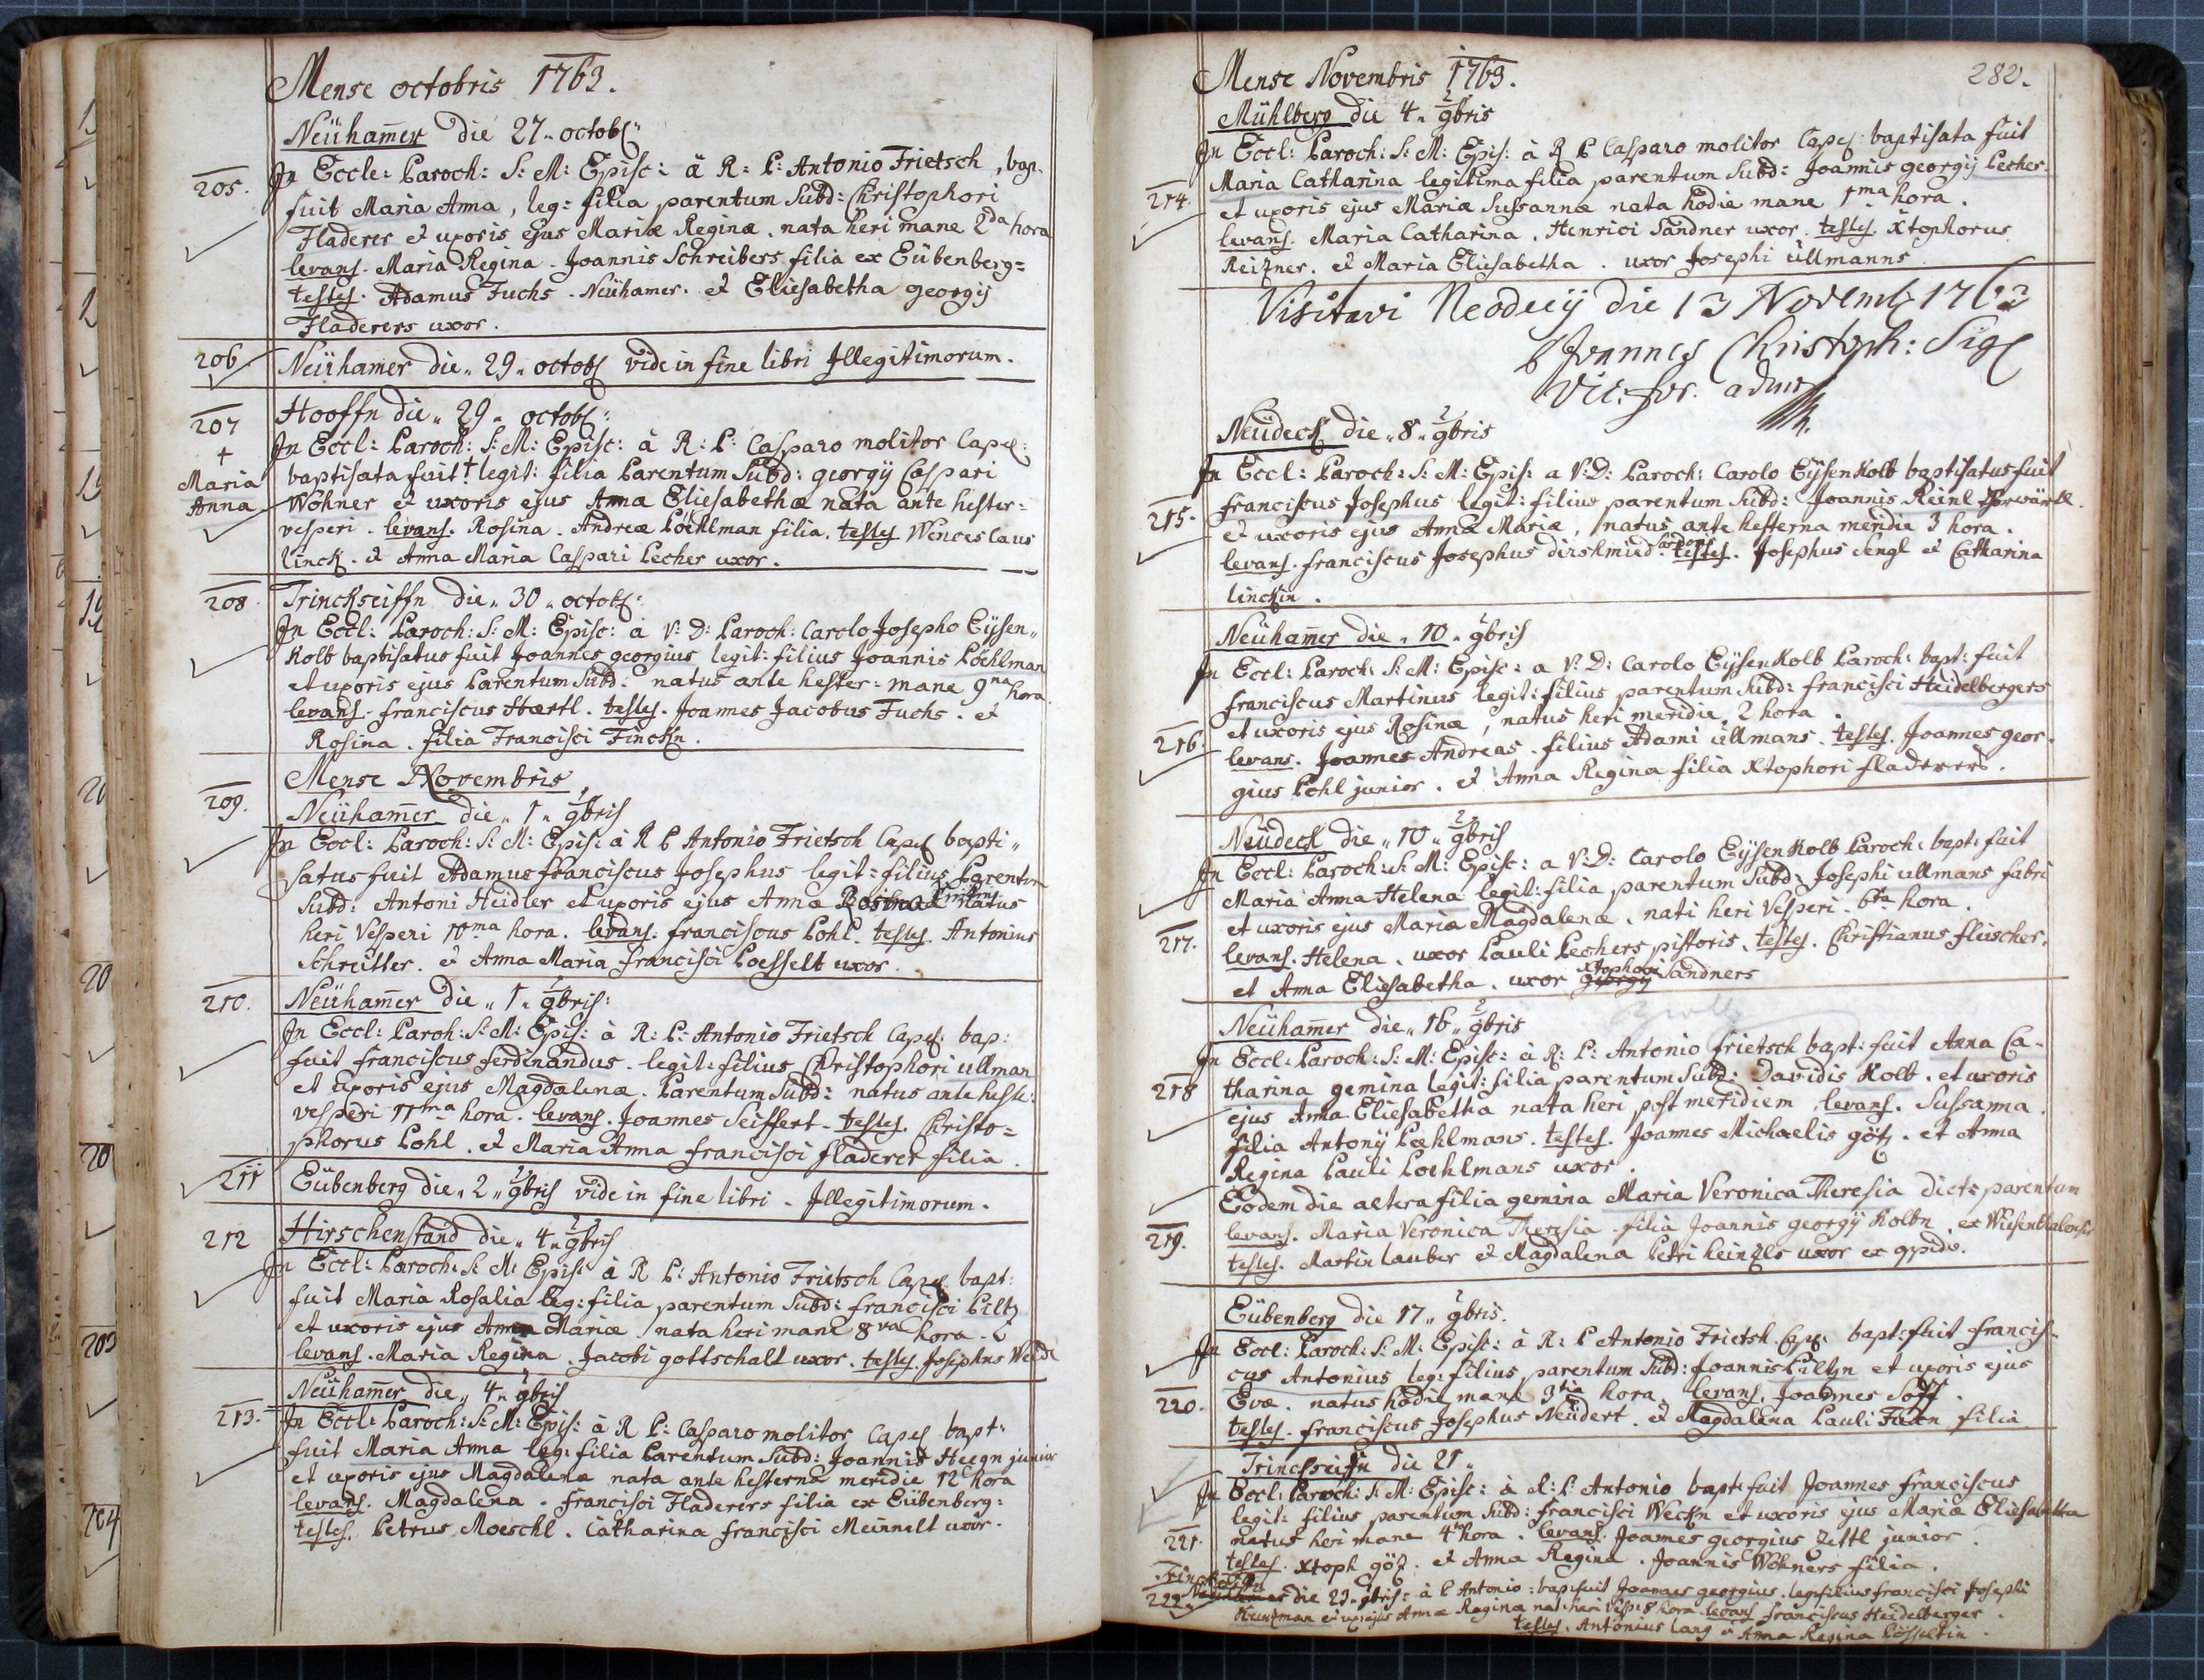 Mense octobris 1763.
Neühamer die 27 octob:
205.
In Eccle: Paroch: S: M: Episc: à R: P: Antonio Frietsch, bap.
fuit Maria Anna, leg: filia parentum Subd: Christophori
Fladerer et uxoris ejus Mariæ Reginæ. nata heri mane 2da hora
levans. Maria Regina. Joannis Schreibers filia ex Eübenberg=
testes. Adamus Fuchs. Neühamer. et Eliesabetha georgij
Fladerers uxor.
206
Neühamer die 29 octob vide in fine libri Illegitimorum.
207
+
Maria
Anna
Hooffn die 29 octob:
In Eccl: Paroch: S: M: Episc: à R: P: Casparo molitor Capel:
baptisata fuit + legit: filia Parentum Subd: georgij Caspari
Wöhner et uxoris ejus Anna Eliesabethæ nata ante hester=
vesperi. levans. Rosina. Andreæ Pöehlman filia. testes Wenceslaus
linck. et Anna Maria Caspari Lecher uxor.
208
Trinckseiffn die 30 octob:
In Eccl: Paroch: S: M: Episc: à V: D: Paroch: Carolo Josepho Eÿsen"
Kolb baptisatus fuit Joannes georgius legit: filius Joannis Pöehlman
et uxoris ejus Parentum Subd: natus ante hester= mane 9na hora.
levans. franciscus Haertl. testes. Joannes Jacobus Fuchs. et
Rosina. filia Francisci Finckn.
Mense Novembris
209.
Neühamer die 1 9bris
In Eccl: Paroch: S: M: Epis: à R P Antonio Frietsch Capel bapti"
satus fuit Adamus franciscus Josephus legit: filius Parentum
Subd: Antoni Heidler et uxoris ejus Annæ natus
heri Vesperi 10ma hora. levans. franciscus Pohl. testes. Antonius
Schreütter. et Anna Maria francisci Poesselt uxor.
210.
Neühamer die 1 9bris:
In Eccl: Paroh: S: M: Epis: à R: P: Antonio Frietsch Capel: bap:
fuit franciscus ferdinandus. legit: filius Christophori ullman
et uxoris ejus Magdalenæ. Parentum Subd: natus ante heste:
vesperi 11ma hora. levans. Joannes Seiffert. testes. Christo=
phorus Pohl. et Maria Anna francisci fladerer filia.
211
Eübenberg die 2 9bris vide in fine libri. Illegitimorum.
212
Hirschenstand die 4 9bris
In Eccl: Paroch: S: M: Epis: à R P: Antonio Frietsch Capel bapt:
fuit Maria Rosalia leg: filia parentum Subd: francisci Piltz
et uxoris ejus Mariæ nata heri mane 8va hora.
levans. Maria Regina. Jacobi gottschalt uxor. testes. Josephus
213.
Neühamer die 4 9bris
In Eccl: Paroch: S: M: Epis: à R P: Casparo molitor Capel bapt:
fuit Maria Anna leg: filia Parentum Subd: Joannis junior
et uxoris ejus Magdalenæ nata ante hesterna meridie 12 hora
levans. Magdalena. francisci Fladerers filia ex Eübenberg:
testes. Petrus Moeschl. Catharina francisci Meinnelt uxor.
Mense Novembris 1763.
282.
Mühlberg die 4 9bris
214
In Eccl: Paroch: S: M: Epis: à R P Casparo molitor Capel: baptisata fuit
Maria Catharina legitima filia parentum Subd: Joannis georgij Lecher.
et uxoris ejus Mariæ Sussannæ nata hodie mane 1ma hora.
levans. Maria Catharina. Henrici Sandner uxor. testes. Xtophorus
Reitzner. et Maria Eliesabetha. uxor Josephi ullmanns.
Visitavi Neodecij die 13 Novemb 1763
Joannes Christoph: Sigl
Vic: for.
Neüdeck die 8 9bris
215.
In Eccl: Paroch: S: M: Epis: a V: D: Paroch: Carolo Eÿsenkolb baptisatus fuit
franciscus Josephus legit: filius parentum Subd: Joannis Reinl
et uxoris ejus Annæ Mariæ, natus ante hesterna meridie 3 hora.
levans. franciscus Josephus dirshmied. testes. Josephus Sengl et Catharina
linckin.
Neühamer die 10 9bris
216
In Eccl: Paroch: S: M: Episc: a V: D: Carolo EÿsenKolb Paroch: bapt: fuit
franciscus Martinus legit: filius parentum Subd: francisci Heidelbergers
et uxoris ejus Rosinæ, natus heri meridie. 2 hora.
levans. Joannes Andreas. filius Adami ullmans. testes. Joannes geor"
gius Pohl junior. et Anna Regina filia Xtophori fladerers.
Neüdeck die 10 9bris
217.
In Eccl: Paroch: S: M: Episc: a V: D: Carolo EÿsenKolb Paroch: bapt: fuit
Maria Anna Helena legit: filia parentum Subd: Josephi ullmans fabri
et uxoris ejus Mariæ Magdalenæ. nati heri Vesperi. 6ta hora.
levans. Helena. uxor Pauli Lechers pistoris. testes. Christianus fleischer.
et Anna Eliesabetha. uxor georgij Xtophori Sandners
Neühamer die 16 9bris
218
In Eccl: Paroch: S: M: Episc: à R: P: Antonio frietsch bapt: fuit Anna Ca-
tharina gemina legit: filia parentum Subd: Davidis Kolb. et uxoris
ejus Anna Eliesabetha nata heri post meridiem. levans. Sussanna.
filia Antonij Pöehlmans. testes. Joannes Michaelis götz. et Anna
Regina Pauli Poehlmans uxor.
219.
Eodem die altera filia gemina Maria Veronica Theresia dict: parentum
levans. Maria Veronica Theresia. filia Joannis georgij Kolbn. ex
testes. Martin lauber et Magdalena Petri heinzls uxor ex oppido.
Eübenberg die 17 9bris.
220.
In Eccl: Paroch: S: M: Episc: à R: P Antonio Frietsh Cap: bapt: fuit francis-
cus Antonius leg: filius parentum Subd: Joannis Piltzn et uxoris ejus
Evæ. natus hodie mane 3tia hora. levans. Joannes Soff.
testes. franciscus Josephus Neüdert. et Magdalena Pauli filia
Trinckseiffn die 21
221.
In Eccl: Paroch: S: M: Episc: à R: P: Antonio bapt: fuit Joannes franciscus
legit: filius parentum Subd: francisci Weckn et uxoris ejus Mariæ Eliesabetha
natus heri mane 4 hora. levans. Joannes georgius Zettl junior.
testes. Xtoph götz. et Anna Regina. Joannis Wöhners filia.
Trinckseiffn
222
die 23 9bris: à P Antonio: bap: fuit Joannes georgius. leg: filius francisci Josephi
Kuntzman et ux: ejus Annæ Reginæ nat: heri Vesp: 8 hora levans franciscus Heidelberger.
testes. Antonius lang et Anna Regina Pösseltin.